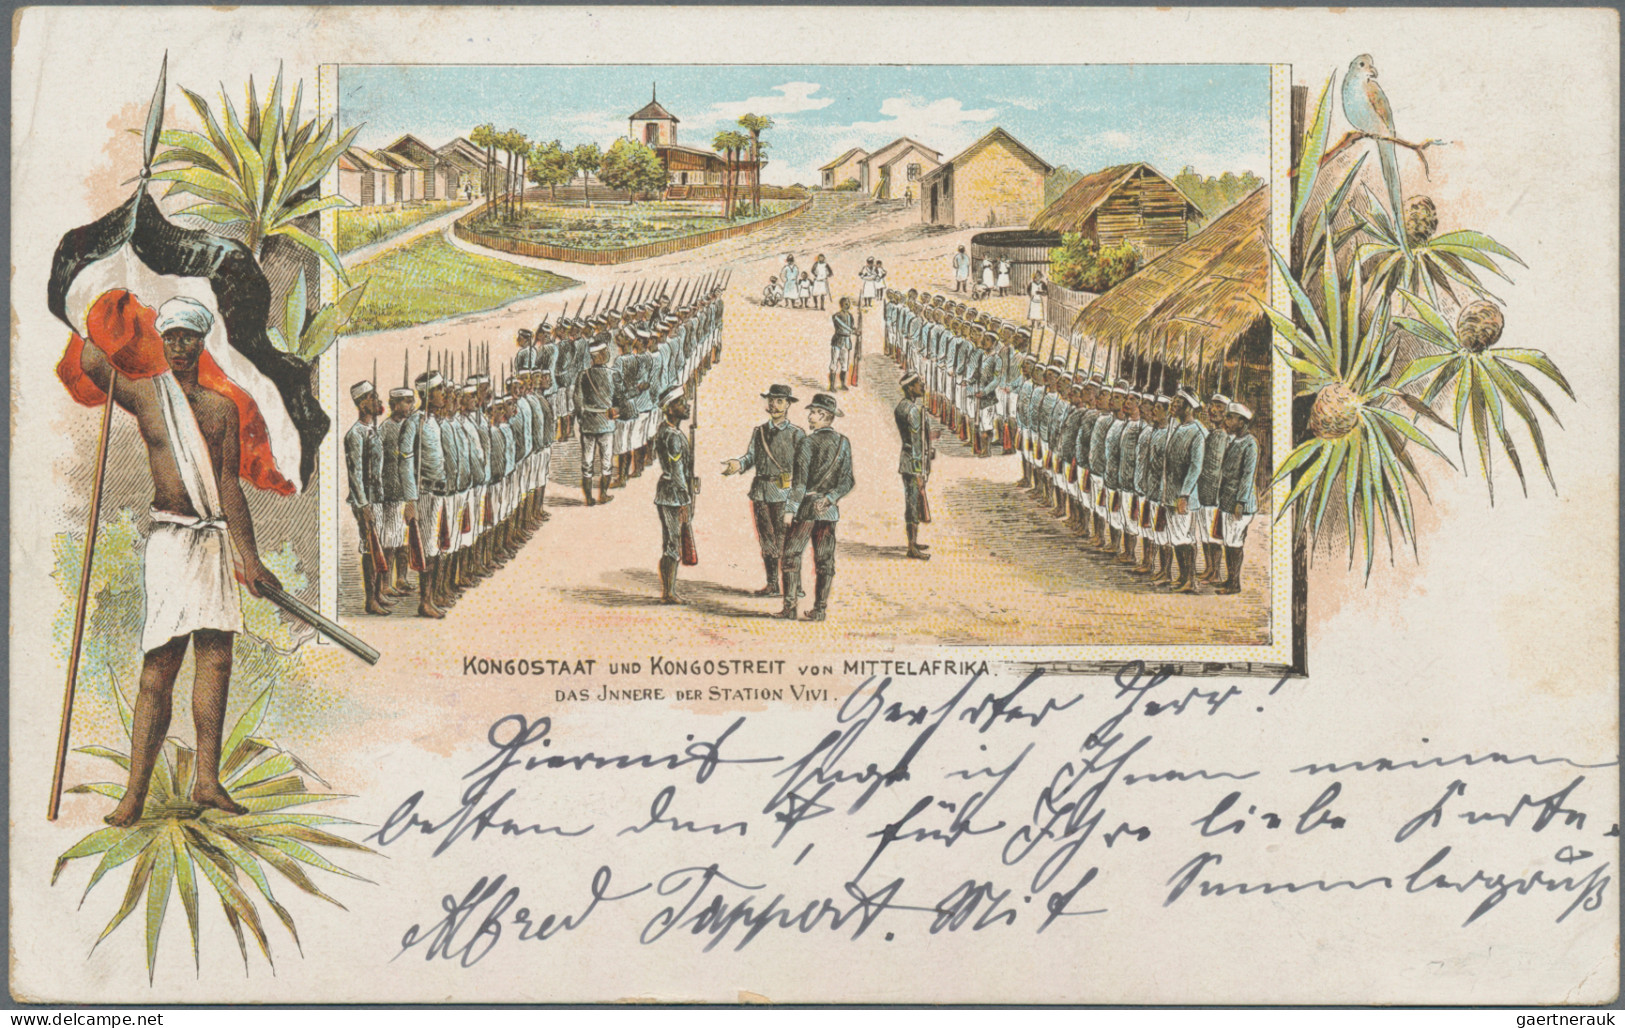 KONGOSTAAT UND KONGOSTREIT VON MITTELAFRIKA.
DAS JNNERE DER STATION VIVI.
Geehrter Herr!
Hiermit sage ich Ihnen meinen
besten Dank, für Ihre liebe Karte.
Alfred Mit Sammlergruß
www.oldthing.de/Briefmarken-Gaertner
gaertnerauk